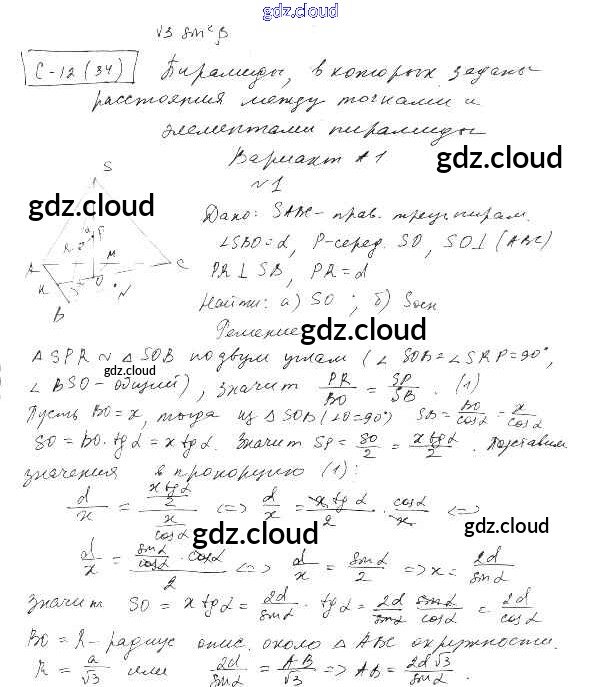 gdz.cloud
√3 sin²β
С-12 (34) Пирамиды, в которых заданы
расстояния между точками и
элементами пирамиды
Вариант А1
gdz.cloud
№1
S
gdz.cloud
Дано: SABC - прав. треуг. пирам.
∠SBO = α, P - серед. SO, SO ⊥ (ABC)
PR ⊥ SB, PR = d
R P M
A C
K O N
B
gdz.cloud
Найти: а) SO ; б) Sосн
gdz.cloud
Решение
△SPR ~ △SOB по двум углам (∠SOB = ∠SRP = 90°,
gdz.cloud
∠BSO - общий), значит PR/BO = SP/SB. (1)
Пусть BO = x, тогда из △SOB (∠O = 90°) SB = BO/cosα = x/cosα
SO = BO · tgα = x tgα. Значит SP = SO/2 = x tgα/2. Подставим
gdz.cloud
значения в пропорцию (1):
d/x = (x tgα/2)/(x/cosα) <=> d/x = x tgα/2 · cosα/x <=>
gdz.cloud
gdz.cloud
d/x = (sinα/cosα · cosα)/2 <=> d/x = sinα/2 => x = 2d/sinα
Значит SO = x tgα = 2d/sinα · tgα = 2d/sinα · sinα/cosα = 2d/cosα
BO = R - радиус опис. около △ABC окружности.
R = a/√3 или 2d/sinα = AB/√3 => AB = 2d√3/sinα.